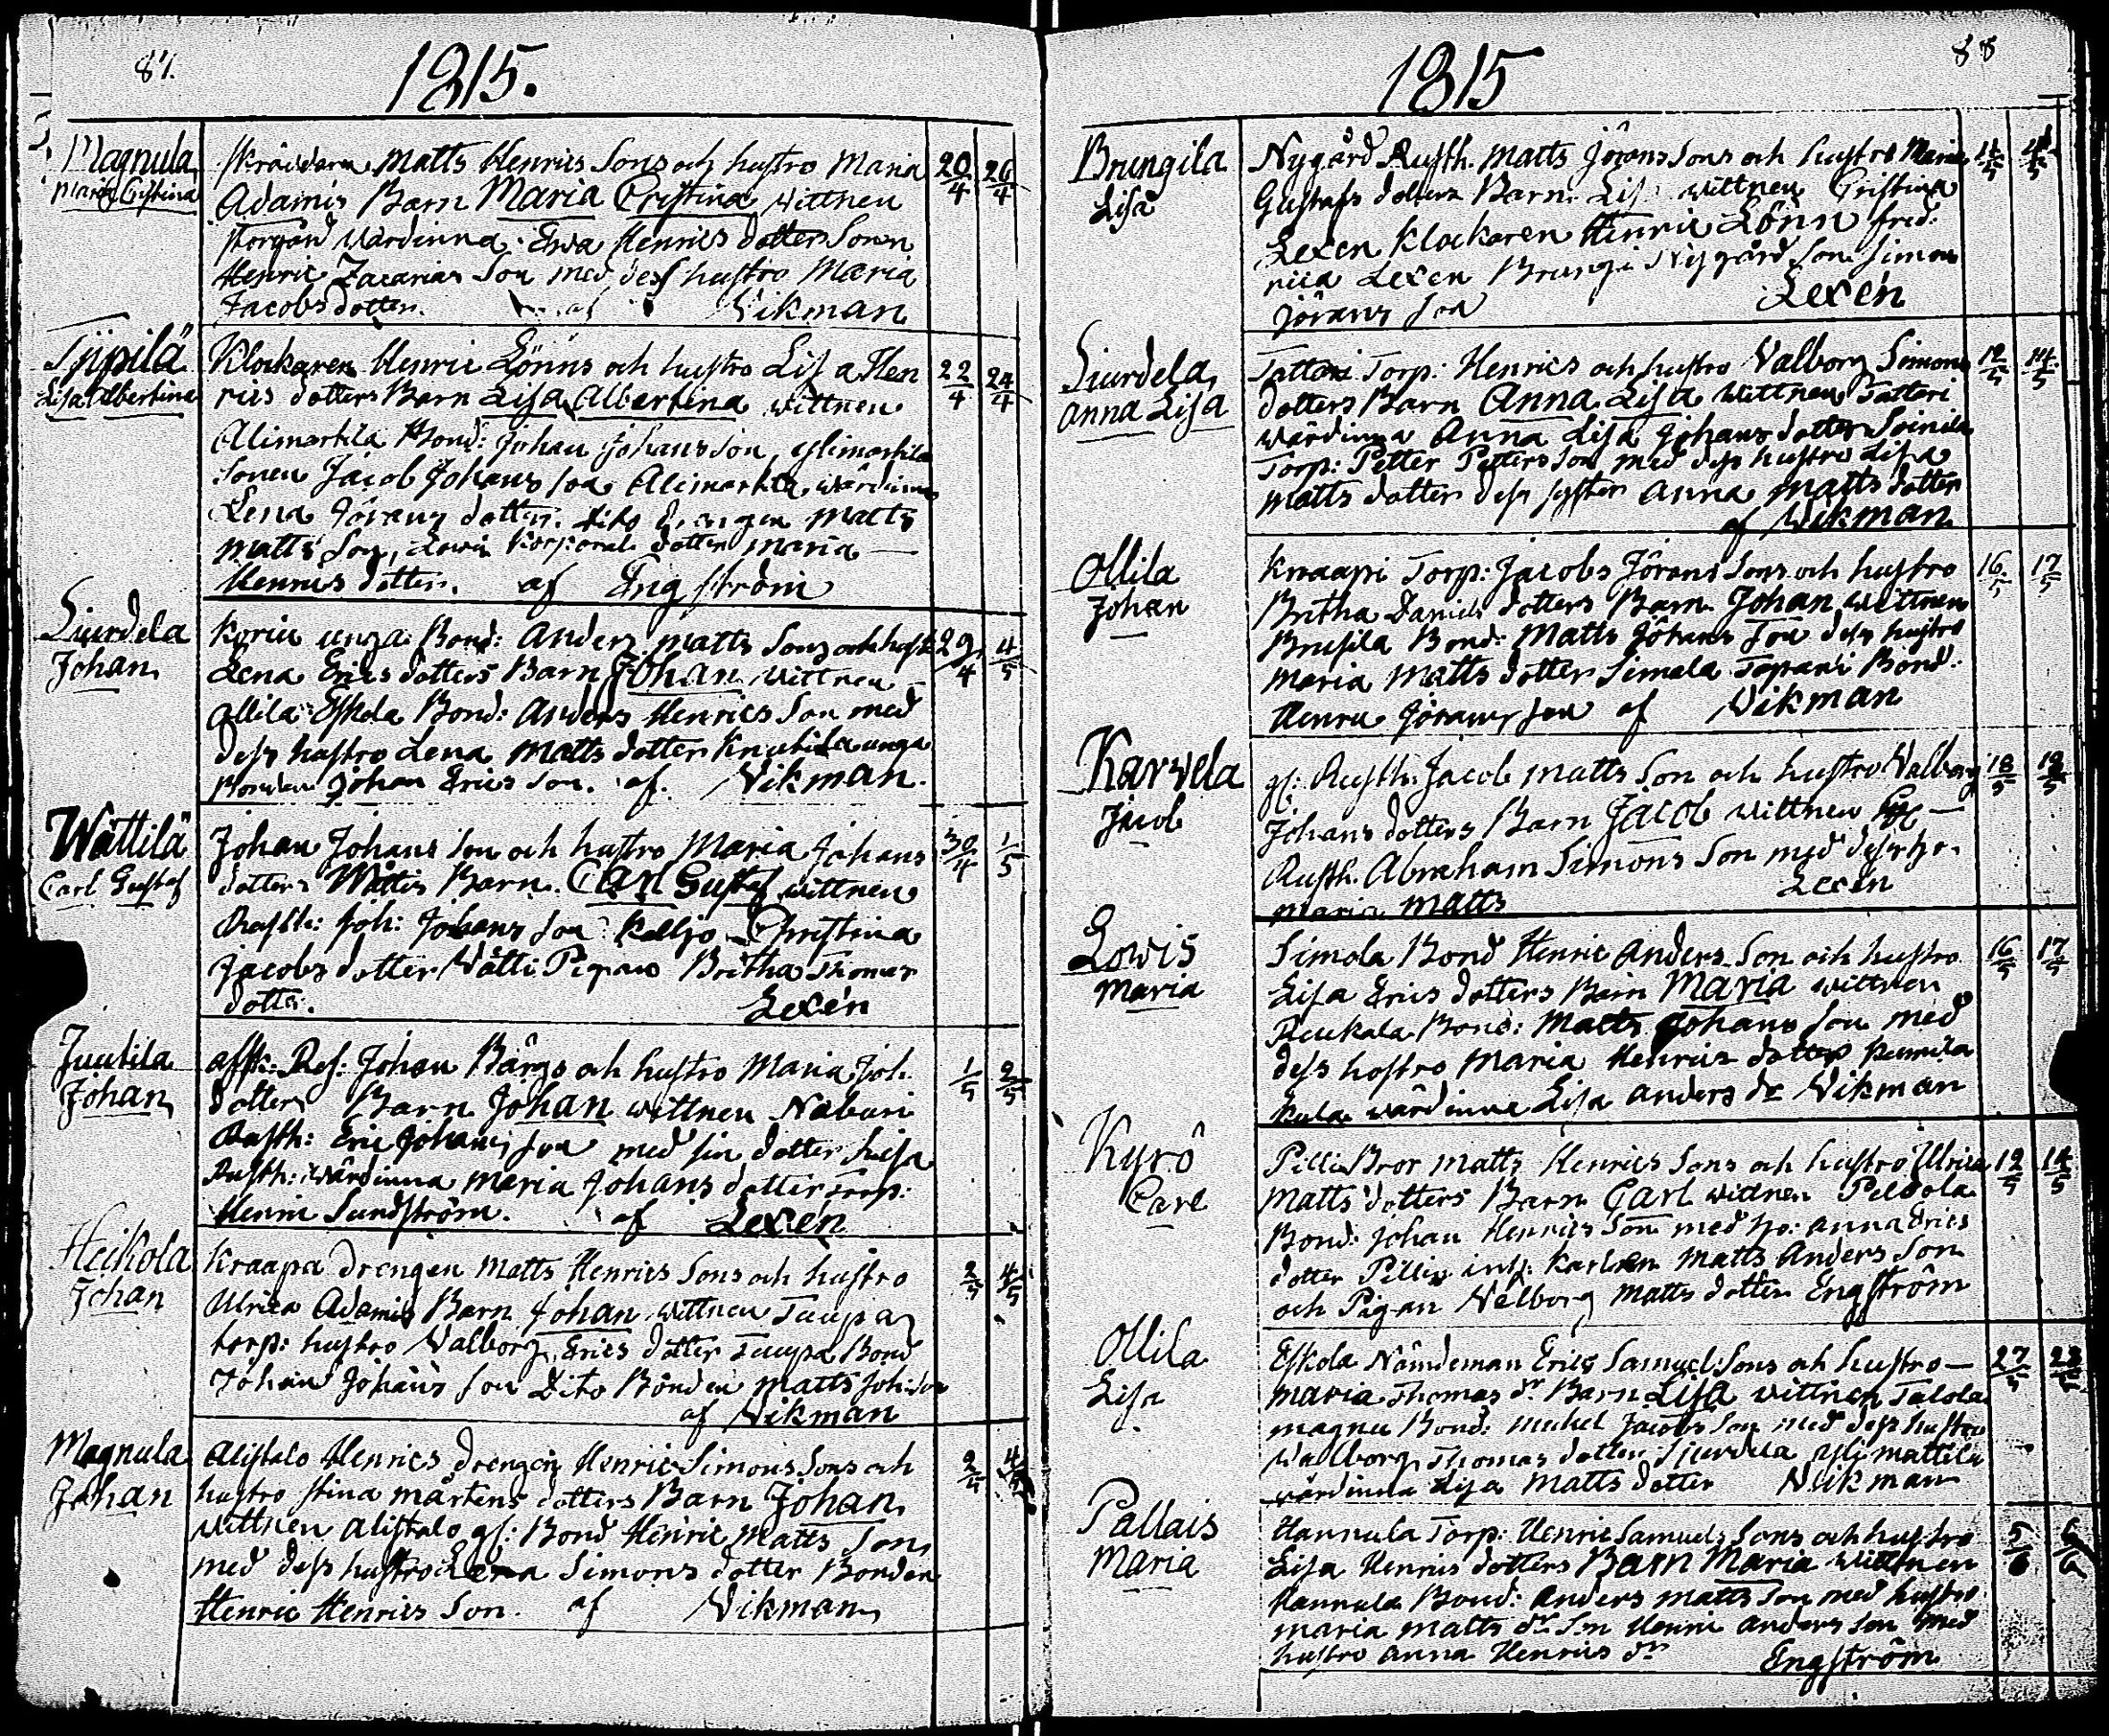 87.
1815.
Magnula
Maria Cristina
Skräddaren Matts Henrics Sons och hustro Maria 20/4 26/4
Adamis Barn Maria Cristina wittnen
Storgård wärdinna Ewa Henrics dotter Sonen
Henric Zacarias Son med dess hustro Maria
Jacobs dotter. af Wikman
Typilä
Lisa Albertina
Klockaren Henric Lönns och hustro Lisa Hen 22/4 24/4
rics dotters Barn Lisa Albertina wittnen
Alimartila Bond: Johan Johansson, Ylimartila
Sonen Jacob Johans son Alimartila wärdinna
Lena Jörans dotter. dito drengen Matts
Matts Son, Lowis Korporals dotter Maria
Henrics dotter. af Engström
Siurdela
Johan
Koriu unga Bond: Anders Matts Sons och hust: 29/4 4/5
Lena Erics dotters Barn Johan wittnen
Ollila Eskola Bond: Anders Henrics Son med
dess hustro Lena Matts dotter Knutila unga
Bonden Johan Erics Son. af. Wikman.
Wättilä
Carl Gustaf
Johan Johans Son och hustro Maria Johans 30/4 1/5
dotters Barn. Carl Gustaf wittnen
Rusth: Joh: Johans Son Christina
Jacobs dotter Wätti Pigan Britha Thomas
dotter. Lexén
Juutila
Johan
affsk: Ref: Johan Bärgs och hustro Maria Joh 1/5 2/5
dotters Barn Johan wittnen Naburi
Rusth: Eric Johans son med sin dotter Lisa
Rusth: wärdinna Maria Johans dotter Torp:
Henric Sundström. af Lexen
Heikola
Johan
Kraapa Drengen Matts Henrics Sons och hustro 2/5 4/5
Ulrica Adamis Barn Johan wittnen Tuupa
torp: hustro Valborg Erics dotter Tuupa Bond
Johan Johans son Dito Bonden Matts Joh: son
af Wikman
Magnula
Johan
Alistalo Henrics drengen Henric Simons Sons och 2/5 4/5
hustro Stina Mårtens dotters Barn Johan
wittnen Alistalo gl: Bond Henric Matts Son
med dess hustro Lena Simons dotter Bonden
Henric Henrics Son. af Wikman
88
1815
Brungila
Lisa
Nygård Rusth. Matts Jörans Sons och hustro Maria
Gustafs dotters Barn Lisa wittnen Cristina
Lexen Klockaren Henric Lönn fred:
rica Lexen Brungi Nygård Son Simon
Jörans Son Lexén
Siurdela
Anna Lisa
Tattari Torp: Henrics och hustro Valborg Simons 12/5 14/5
dotters Barn Anna Lisa wittnen Tattari
wärdinna Anna Lisa Johans dotter Soinila
Torp: Petter Petters Son med dess hustro Lisa
Matts dotter dess syster Anna Matts dotter
af Wikman
Ollila
Johan
Knaapi Torp: Jacobs Jörans Sons och hustro 16/5 17/5
Britha Daniels dotters Barn Johan wittnen
Brusila Bond: Matts Johans Son dess hustro
Maria Matts dotter Simala Tapani Bond:
Henric Jörans son af Wikman
Karwela
Jacob
gl: Rusth: Jacob Matts Son och hustro Valborg 18/5 19/5
Johans dotters Barn Jacob wittnen
Rusth. Abraham Simons Son med dess ho.
Maria Matts Lexén
Lowis
Maria
Simola Bond Henric Anders Son och hustro 16/5 17/5
Lisa Erics dotters Barn Maria wittnen
Reukala Bond: Matts Johans Son med
dess hostro Maria Henrics dotter
wärdinna Lisa Anders dr Wikman
Kyrö
Carl
Pilli Bror Matts Henrics Sons och hustro Ulrica 12/5 14/5
Matts dotters Barn Carl wittnen Peldola
Bond: Johan Henrics Son med ho: Anna Erics
dotter Pillis inh: Karlen Matts Anders Son
och Pigan Valborg Matts dotter Engström
Ollila
Lisa
Eskola Nämdeman Erics Samuels Sons och hustro 27/5 28/5
Maria Thomas dr Barn Lisa wittnen Talola
Magnu Bond: Michel Jacobs Son med dess hustro
Walborg Thomas dotter Siurdela Yli mattila
wärdinna Lisa Matts dotter Wikman
Pallais
Maria
Hannula Torp: Henric Samuels Sons och hustro 5/6 6/6
Lisa Henrics dotters Barn Maria wittnen
Hannula Bond: Anders Matts Son med hustro
Maria Matts dr Son Henric Anders Son med
hustro Anna Henrics dr Engström